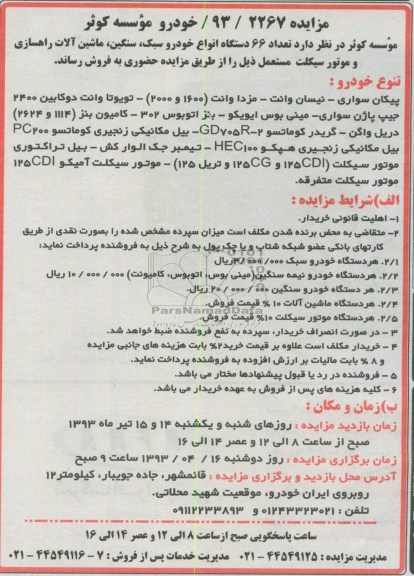 مزایده ۲۲۶۷ / ۹۳/ خودرو مؤسسه کوثر
مؤسسه کوثر در نظر دارد تعداد ۶۶ دستگاه انواع خودرو سبک، سنگین، ماشین آلات راهسازی
و موتور سیکلت مستعمل ذیل را از طریق مزایده حضوری به فروش رساند.
تنوع خودرو :
پیکان سواری - نیسان وانت - مزدا وانت (۱۶۰۰ و ۲۰۰۰) - تویوتا وانت دوکابین ۲۴۰۰
جیپ پاژن سواری- مینی بوس ایویکو - بنز اتوبوس ۳۰۲ - کامیون بنز (۱۱۱۴ و ۲۶۲۴)
دریل واگن - گریدر کوماتسو GD۷۰۵R-۲- بیل مکانیکی زنجیری کوماتسو PC۲۰۰
بیل مکانیکی زنجیری هپکو HEC۱۰۰ - تیمبر جک الوار کش - بیل تراکتوری
موتور سیکلت (۱۲۵CDI و ۱۲۵CG و تریل ۱۲۵) - موتور سیکلت آمیکو ۱۲۵CDI
موتور سیکلت متفرقه.
الف)شرایط مزایده :
۱- اهلیت قانونی خریدار.
۲- متقاضی به محض برنده شدن مکلف است میزان سپرده مشخص شده را بصورت نقدی از طریق
کارتهای بانکی عضو شبکه شتاب و یا چک پول به شرح ذیل به فروشنده پرداخت نماید:
۲/۱. هردستگاه خودرو سبک ۴/۰۰۰/۰۰۰ریال
۲/۲. هردستگاه خودرو نیمه سنگین(مینی بوس، اتوبوس، کامیونت) ۰۰۰ / ۰۰۰ / ۱۰ ریال
۲/۳. هر دستگاه خودرو سنگین ۰۰۰ / ۰۰۰ / ۲۰ ریال.
۲/۴. هردستگاه ماشین آلات ۱۰ % قیمت فروش.
۲/۵. هردستگاه موتور سیکلت ۱۰% قیمت فروش.
ParsNamadData
۳ - در صورت انصراف خریدار، سپرده به نفع فروشنده ضبط خواهد شد.
۴ - خریدار مکلف است علاوه بر قیمت خرید۲% بابت هزینه های جانبی مزایده
و ۸ % بابت مالیات بر ارزش افزوده به فروشنده پرداخت نماید.
۵ - فروشنده در رد یا قبول پیشنهادها مختار می باشد.
۶ - کلیه هزینه های پس از فروش به عهده خریدار می باشد.
ب)زمان و مکان :
زمان بازدید مزایده : روزهای شنبه و یکشنبه ۱۴ و ۱۵ تیر ماه ۱۳۹۳
صبح از ساعت ۸ الی ۱۲ و عصر ۱۴ الی ۱۶
زمان برگزاری مزایده : روز دوشنبه ۱۶ / ۰۴ / ۱۳۹۳ ساعت ۹ صبح
آدرس محل بازدید و برگزاری مزایده : قائمشهر، جاده جویبار، کیلومتر۱۲
روبروی ایران خودرو، موقعیت شهید محلاتی.
تلفن : ۰۱۲۴۳۲۳۰۲۱ و ۰۹۱۱۲۲۳۳۸۹۳
ساعت پاسخگویی صبح ازساعت ۸ الی ۱۲ و عصر ۱۴ الی ۱۶
مدیریت مزایده : ۴۴۵۴۹۱۲۵ - ۰۲۱ مدیریت خدمات پس از فروش : ۷ - ۴۴۵۴۹۱۱۶ - ۰۲۱